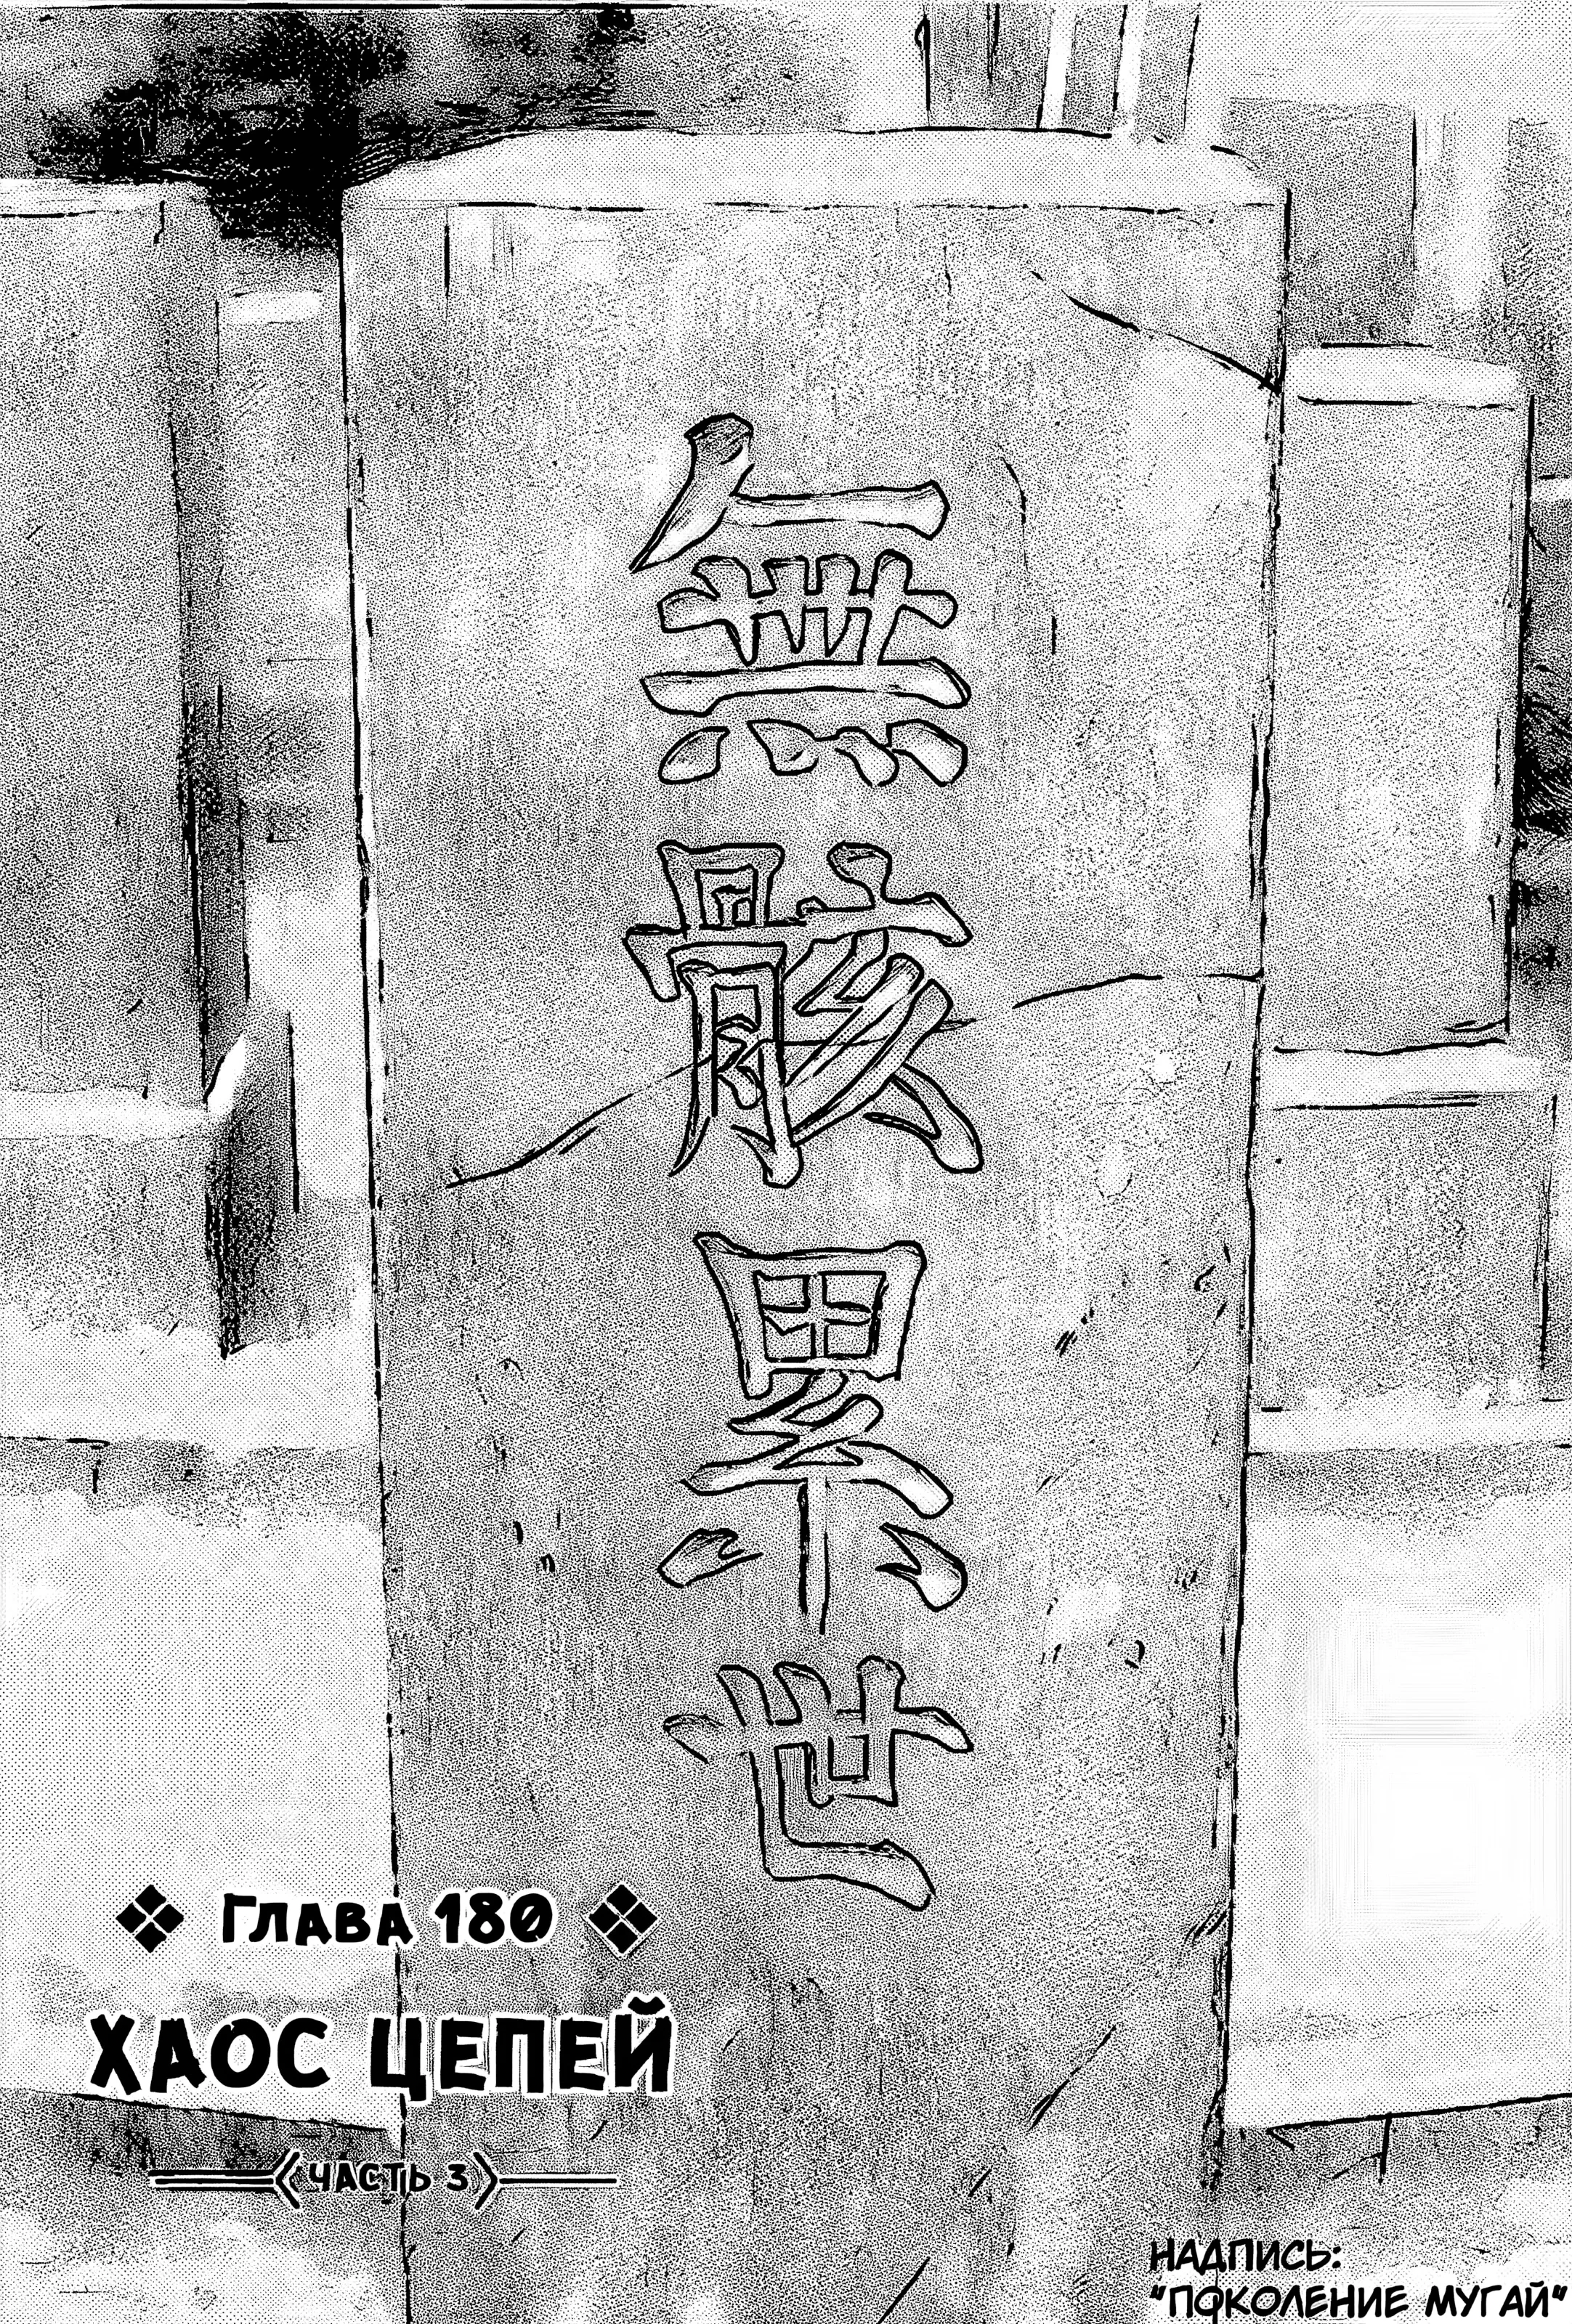 無骸累世
ГЛАВА 180
ХАОС ЦЕПЕЙ
ЧАСТЬ 3
НАДПИСЬ:
"ПОКОЛЕНИЕ МУГАЙ"